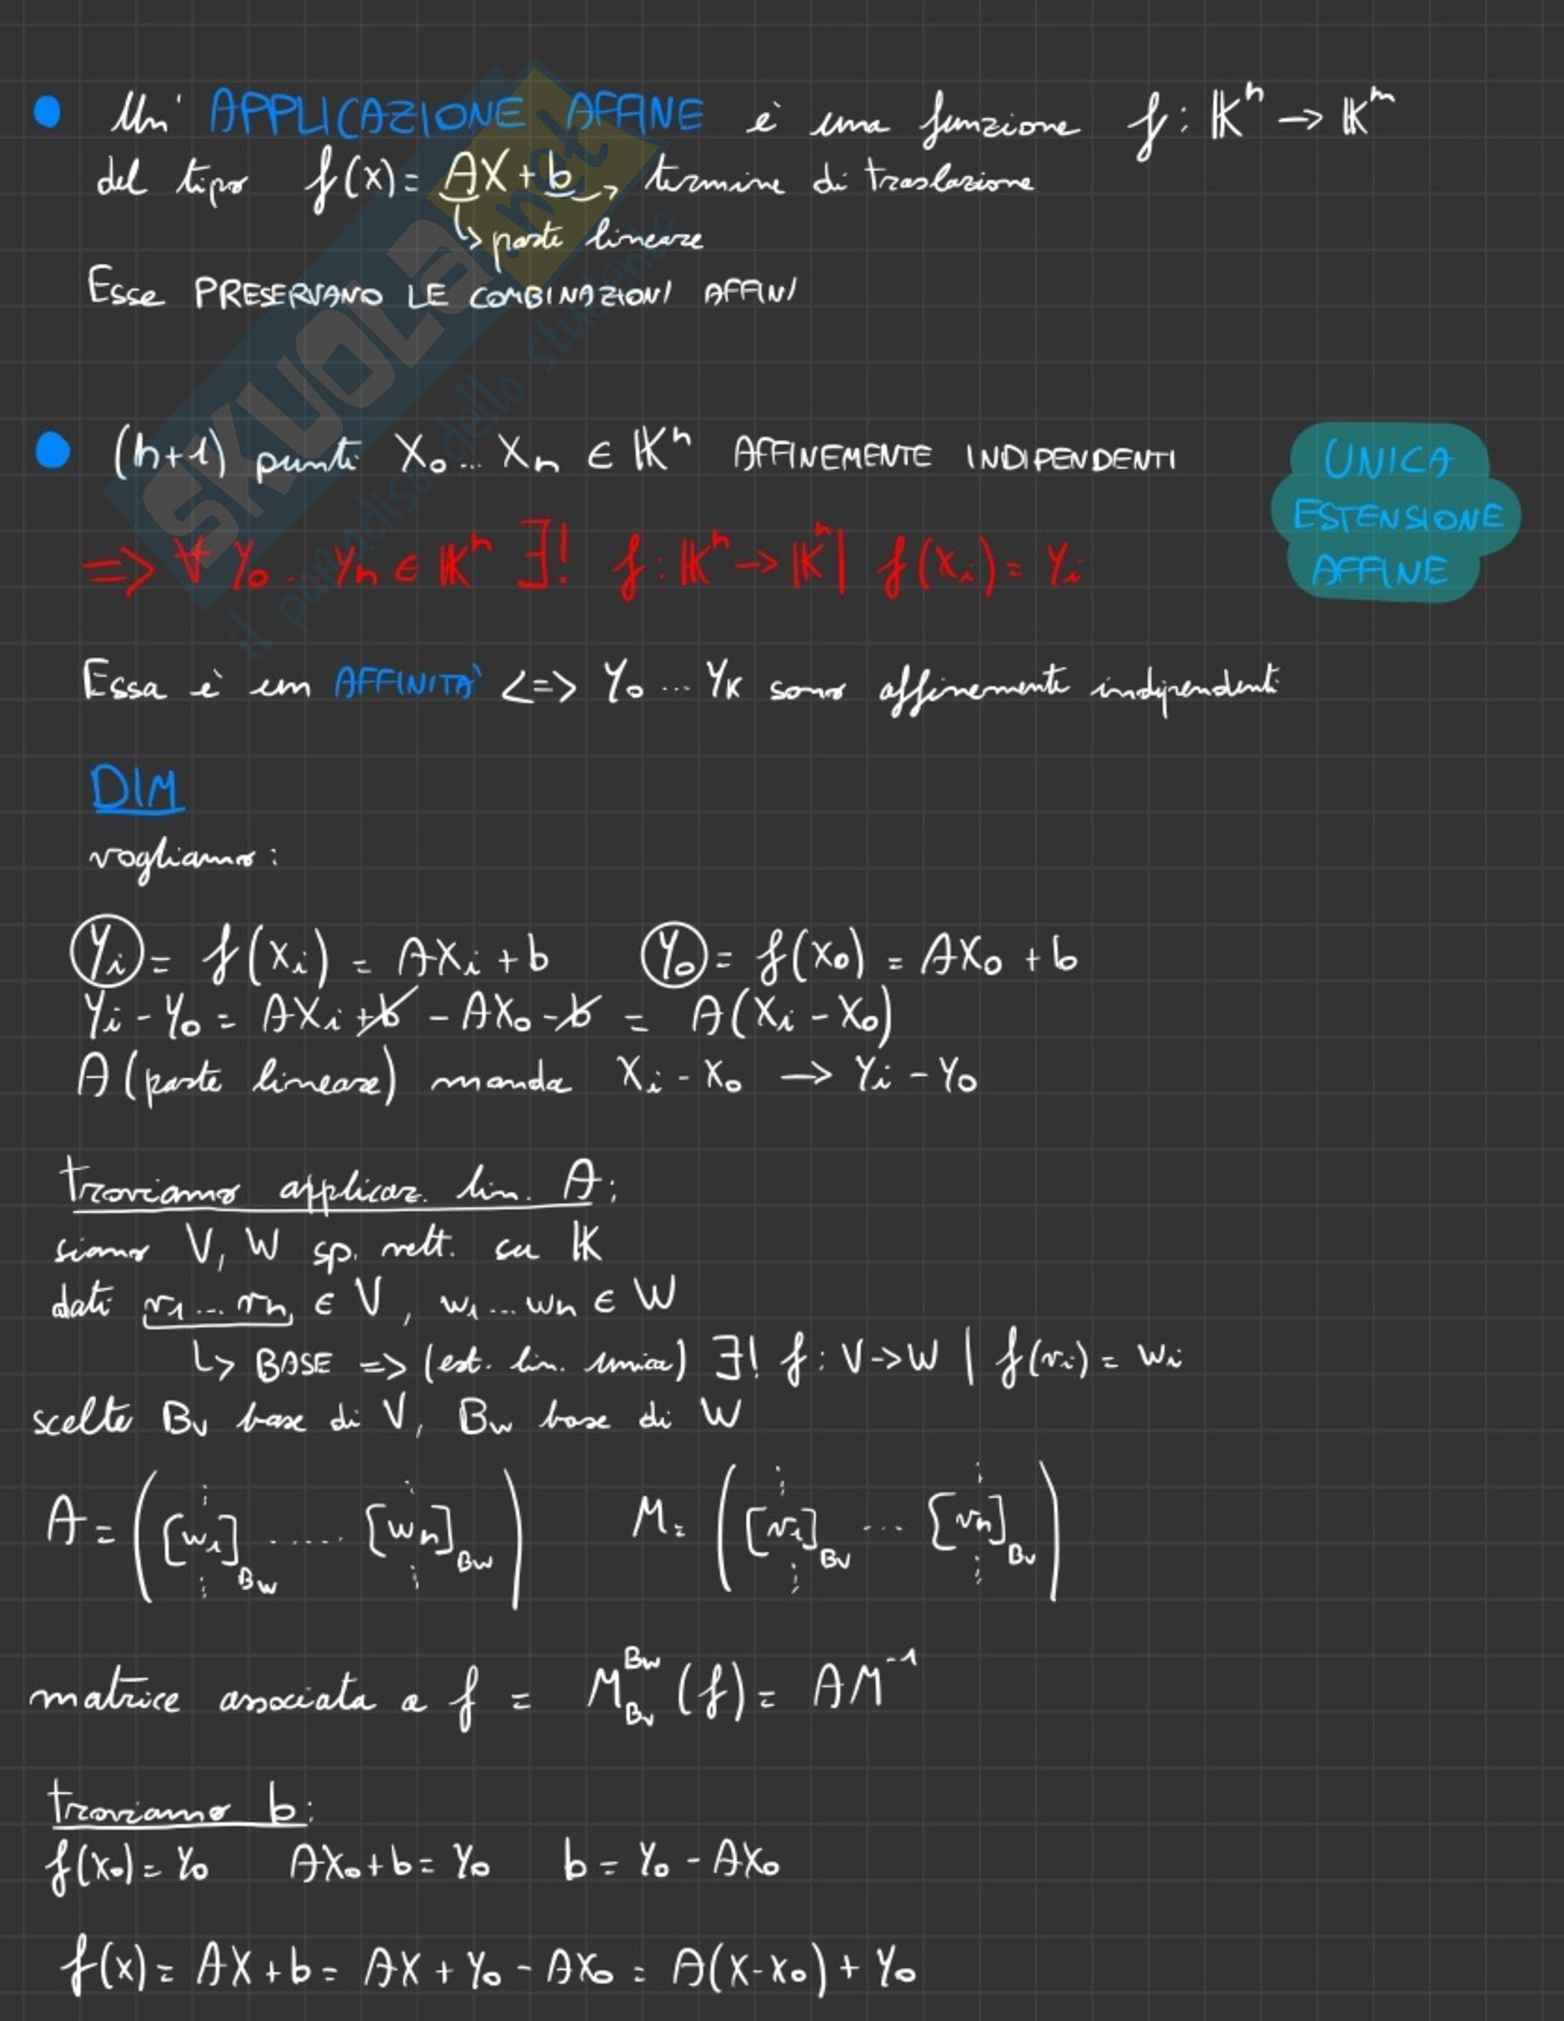 • Un' APPLICAZIONE AFFINE è una funzione f: 𝕂ⁿ → 𝕂ᵐ
del tipo f(x) = AX + b → termine di traslazione
↳ parte lineare
Esse PRESERVANO LE COMBINAZIONI AFFINI
• (n+1) punti X₀ ... Xₙ ∈ 𝕂ⁿ AFFINEMENTE INDIPENDENTI
UNICA
ESTENSIONE
AFFINE
=> ∀ Y₀ ... Yₙ ∈ 𝕂ⁿ ∃! f: 𝕂ⁿ → 𝕂ⁿ | f(Xᵢ) = Yᵢ
Essa è un AFFINITA' <=> Y₀ ... Yₖ sono affinemente indipendenti
DIM
vogliamo:
Yᵢ = f(xᵢ) = AXᵢ + b Y₀ = f(x₀) = AX₀ + b
Yᵢ - Y₀ = AXᵢ + b - AX₀ - b = A(Xᵢ - X₀)
A (parte lineare) manda Xᵢ - X₀ → Yᵢ - Y₀
troviamo applicaz. lin. A:
siano V, W sp. vett. su 𝕂
dati v₁ ... vₙ ∈ V, w₁ ... wₙ ∈ W
↳ BASE => (est. lin. unica) ∃! f: V → W | f(vᵢ) = wᵢ
scelte Bv base di V, Bw base di W
A = ( [w₁]_Bw ...... [wₙ]_Bw ) M = ( [v₁]_Bv ... [vₙ]_Bv )
matrice associata a f = M_Bv^Bw (f) = AM⁻¹
troviamo b:
f(x₀) = Y₀ AX₀ + b = Y₀ b = Y₀ - AX₀
f(x) = AX + b = AX + Y₀ - AX₀ = A(X - X₀) + Y₀
SKUOLA.net
il paradiso dello studente